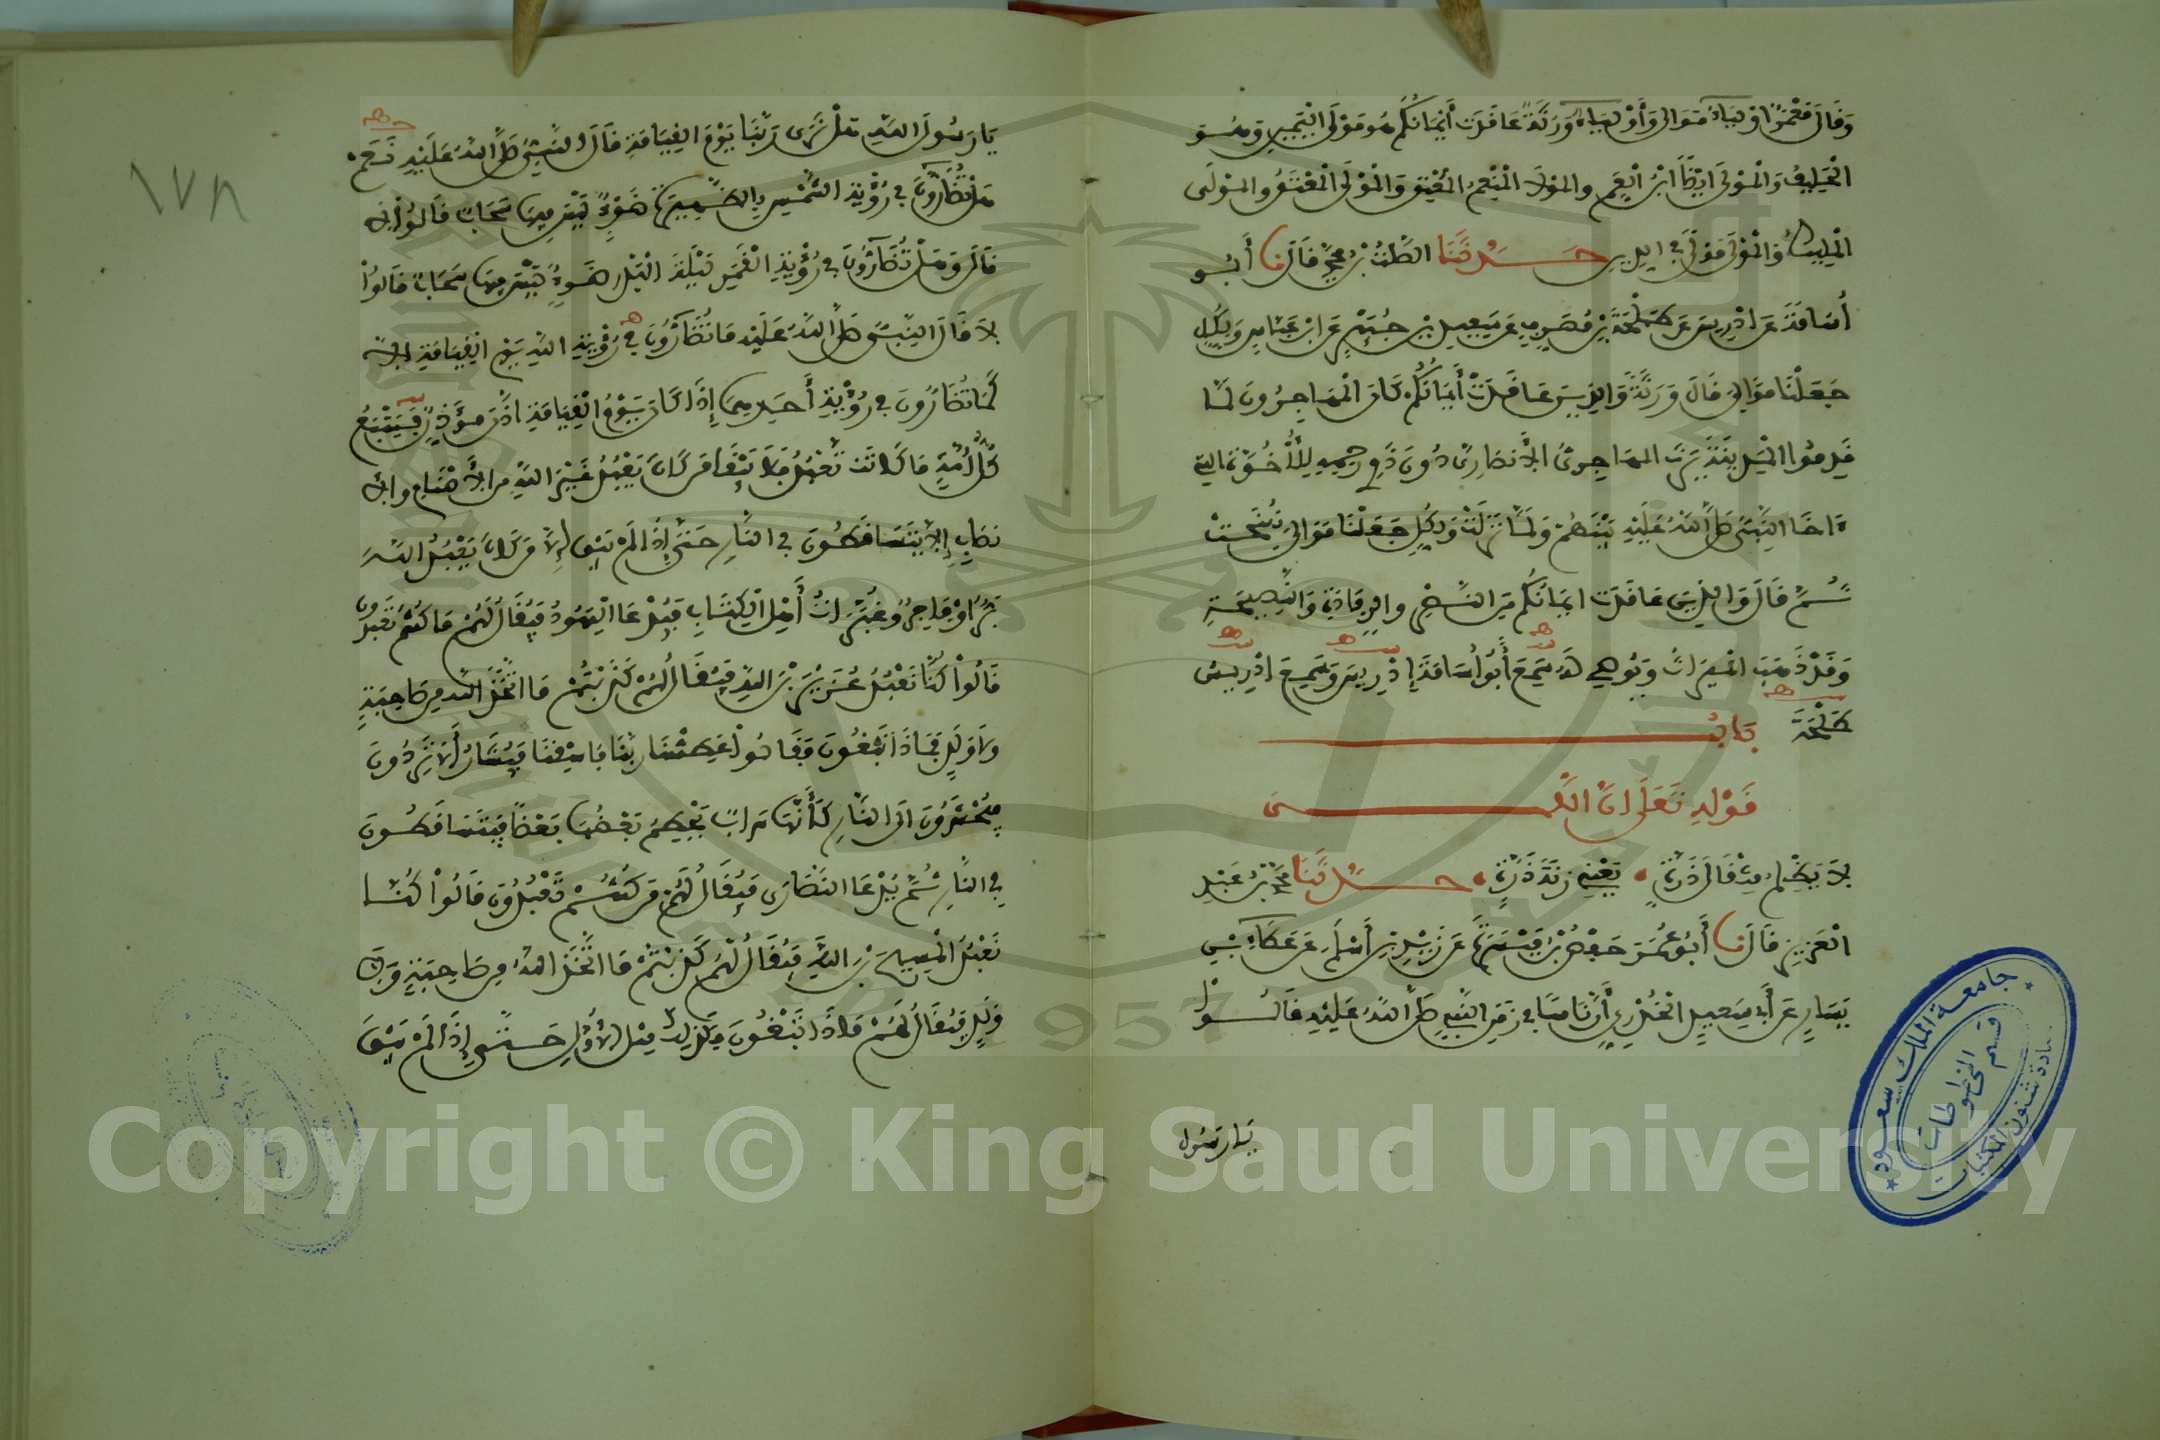 وَقَالَ مَعْمَرٌ أَوْلِيَاءُ مَوَالِيَ وَأَوْلِيَاءُ وَرَثَةً عَاقَدَتْ أَيْمَانُكُمْ هُوَ مَوْلَى الْيَمِينِ وَهُوَ
الْحَلِيفُ وَالْمَوْلَى أَيْضًا ابْنُ الْعَمِّ والمَوْلَى الْمُنْعِمُ الْمُعْتِقُ وَالْمَوْلَى الْمُعْتَقُ والمَوْلَى
الْمَلِيكُ وَالْمَوْلَى مَوْلًى فِي الدِّينِ حَدَّثَنَا الصَّلْتُ بْنُ مُحَمَّدٍ قَالَ نا أَبُو
أُسَامَةَ عَنْ إدْرِيسَ عَنْ طَلْحَةَ بْنِ مُصَرِّفٍ عَنْ سَعِيدِ بْنِ جُبَيْرٍ عَنِ ابْنِ عَبَّاسٍ وَلِكُلٍّ
جَعَلْنَا مَوَالِيَ قَالَ وَرَثَةً وَالذِينَ عَاقَدَتْ أَيْمَانُكُمْ كَانَ الْمُهَاجِرُونَ لَمَّا
قَدِمُوا الْمَدِينَةَ يَرِثُ المهَاجِرِيُّ الأَنْصَارِيَّ دُونَ ذَوِي رحِمِهِ لِلْأُخُوَّةِ التي
ءَاخَا النَّبِيُّ صَلَّى اللهُ عَلَيْهِ بَيْنَهُمْ وَلَمَّا نَزَلَتْ وَلِكُلٍّ جَعَلْنَا مَوَالِيَ نُسِخَتْ
ثُمَّ قَالَ وَالذِينَ عَاقَدَت أيْمَانُكُمْ مِنَ النَّصْرِ والرِّفَادَةِ وَالنَّصِيحَةِ
وَقَدْ ذَهَبَ الْمِيرَاثُ وَيُوصِي لَهُ سَمِعَ أَبُو أُسَامَةَ إِدْرِيسَ وَسَمِعَ إدْرِيسُ
طَلْحَةَ بَابُ
قَوْلِهِ تَعَلَى إنَّ اللَّهَ
لاَ يَظْلِمُ مِثْقَالَ ذَرَّةٍ يَعْنِي زِنَةَ ذَرَّةٍ حَدَّثَنَا مُحَمَّدُ بْنُ عَبْدِ
الْعَزِيزِ قَالَ نا أَبُو عُمَرَ حَفْصُ بْنُ مَيْسَرَةَ عَنْ زَيْدِ بْنِ أَسْلَمَ عَنْ عَطَاءِ بْنِ
يَسَارٍ عَنْ أَبِي سَعِيدٍ الْخُدْرِيِّ أَنَّ نَاسًا فِي زَمَنِ النَّبِيِّ صَلَّى اللهُ عَلَيْهِ قَالُوا
يا رسول
١٧٨
يَا رَسُولَ اللهِ هَلْ نَرَى رَبَّنَا يَوْمَ القِيَامَةِ قَالَ النَّبِيُّ صَلَّى اللهُ عَلَيْهِ نَعَمْ
هَلْ تُضَارُّونَ فِي رُؤْيَةِ الشَّمْسِ بِالظَّهِيرَةِ ضَوْءٌ لَيْسَ فِيهَا سَحَابٌ قَالُوا لا
قَالَ وَهَلْ تُضَارُّونَ فِي رُؤْيَةِ الْقَمَرِ لَيْلَةَ الْبَدْرِ ضَوْءٌ لَيْسَ فِيهَا سَحَابٌ قَالُوا
لاَ قَالَ النَّبِيُّ صَلَّى اللهُ عَلَيْهِ مَا تُضَارُّونَ فِي رُؤْيَةِ اللهِ يَوْمَ الْقِيَامَةِ إلا
كَمَا تُضَارُّونَ فِي رُؤْيَةِ أَحَدِهِمَا إِذَا كَانَ يَوْمُ الْقِيَامَةِ أذَّنَ مُؤَذِّنٌ فَيَتْبَعُ
كُلُّ أُمَّةٍ مَا كَانَتْ تَعْبُدُ فَلاَ يَبْقَا مَن كَانَ يَعْبُدُ غَيْرَ اللهِ مِنَ الأَصْنَامِ والأ
نصَابِ إِلاَّ يَتَسَاقَطُونَ فِي النَّارِ حَتَّى إِذَا لَمْ يَبْقَ إِلاَّ مَن كَانَ يَعْبُدُ اللهَ
بَرٌّ أَوْ فَاجِرٌ وَغُبَّرَاتُ أَهْلِ الْكِتَابِ فَيُدْعَا الْيَهُودُ فَيُقَالُ لَهُمْ مَا كُنْتُمْ تَعْبُدُونَ
قَالُوا كُنَّا نَعْبُدُ عُزَيْرَ بْنَ اللهِ فَيُقَالُ لَهُمْ كَذَبْتُمْ مَا اتَّخَذَ اللهُ مِن صَاحِبَةٍ
ولاَ وَلَدٍ فَمَاذَا تَبْغُونَ فَقَالُوا عَطِشْنَا رَبَّنَا فَاسْقِنَا فَيُشَارُ أَلاَ تَرِدُونَ
فَيُحْشَرُونَ الَى النَّارِ كَأَنَّهَا سَرابٌ يَحْطِمُ بَعْضُهَا بَعْضًا فَيَتَسَاقَطُونَ
فِي النَّارِ ثُمَّ يُدْعَا النَّصَارَى فَيُقَالُ لَهُمْ مَن كُنْتُمْ تَعْبُدُونَ قَالُوا كُنَّا
نَعْبُدُ الْمَسِيحَ بْنَ اللهِ فَيُقَالُ لَهُمْ كَذَبْتُمْ مَا اتَّخَذَ اللهُ مِن صَاحِبَةٍ وَلاَ
وَلَدٍ فَيُقَالُ لَهُمْ مَاذَا تَبْغُونَ فَكَذَلِكَ مِثْلَ الأَوَّلِ حَتَّى إِذَا لَمْ يَبْقَ
جامعة الملك سعود
قسم المخطوطات
عمادة شئون المكتبات
1957
Copyright © King Saud University